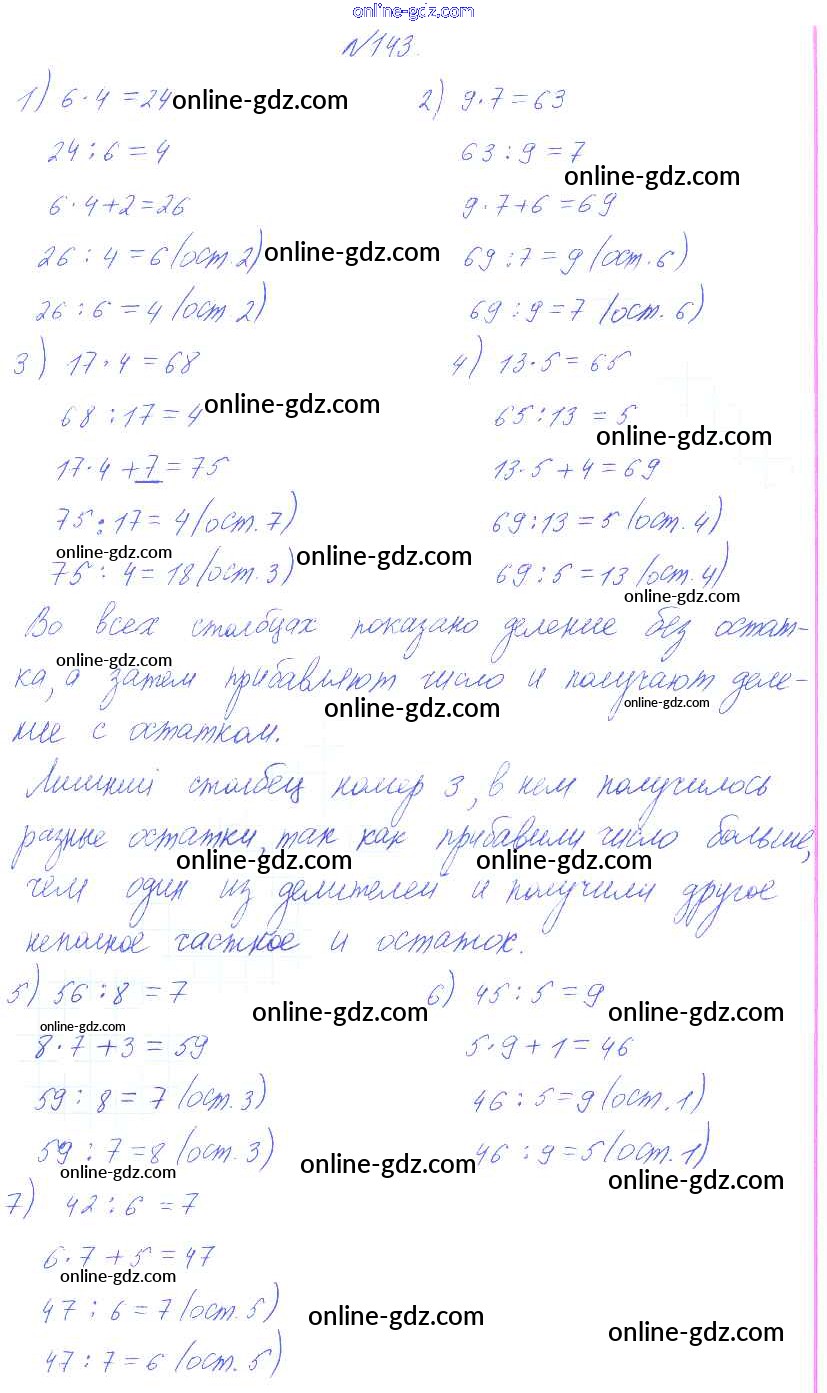 online-gdz.com
№143.
1) 6·4=24 online-gdz.com
24:6=4
6·4+2=26
26:4=6(ост.2) online-gdz.com
26:6=4(ост.2)
2) 9·7=63
63:9=7
online-gdz.com
9·7+6=69
69:7=9(ост.6)
69:9=7(ост.6)
3) 17·4=68
68:17=4 online-gdz.com
17·4+7=75
75:17=4(ост.7)
online-gdz.com
75:4=18(ост.3) online-gdz.com
4) 13·5=65
65:13=5
online-gdz.com
13·5+4=69
69:13=5(ост.4)
69:5=13(ост.4)
online-gdz.com
Во всех столбцах показано деление без остат-
online-gdz.com
ка, а затем прибавляют число и получают деле-
online-gdz.com online-gdz.com
ние с остатком.
Лишний столбец номер 3, в нем получилось
разные остатки, так как прибавили число больше,
online-gdz.com online-gdz.com
чем один из делителей и получили другое
неполное частное и остаток.
5) 56:8=7 online-gdz.com
online-gdz.com
8·7+3=59
59:8=7(ост.3)
59:7=8(ост.3) online-gdz.com
online-gdz.com
6) 45:5=9
online-gdz.com
5·9+1=46
46:5=9(ост.1)
46:9=5(ост.1)
online-gdz.com
7) 42:6=7
6·7+5=47
online-gdz.com
47:6=7(ост.5) online-gdz.com
online-gdz.com
47:7=6(ост.5)